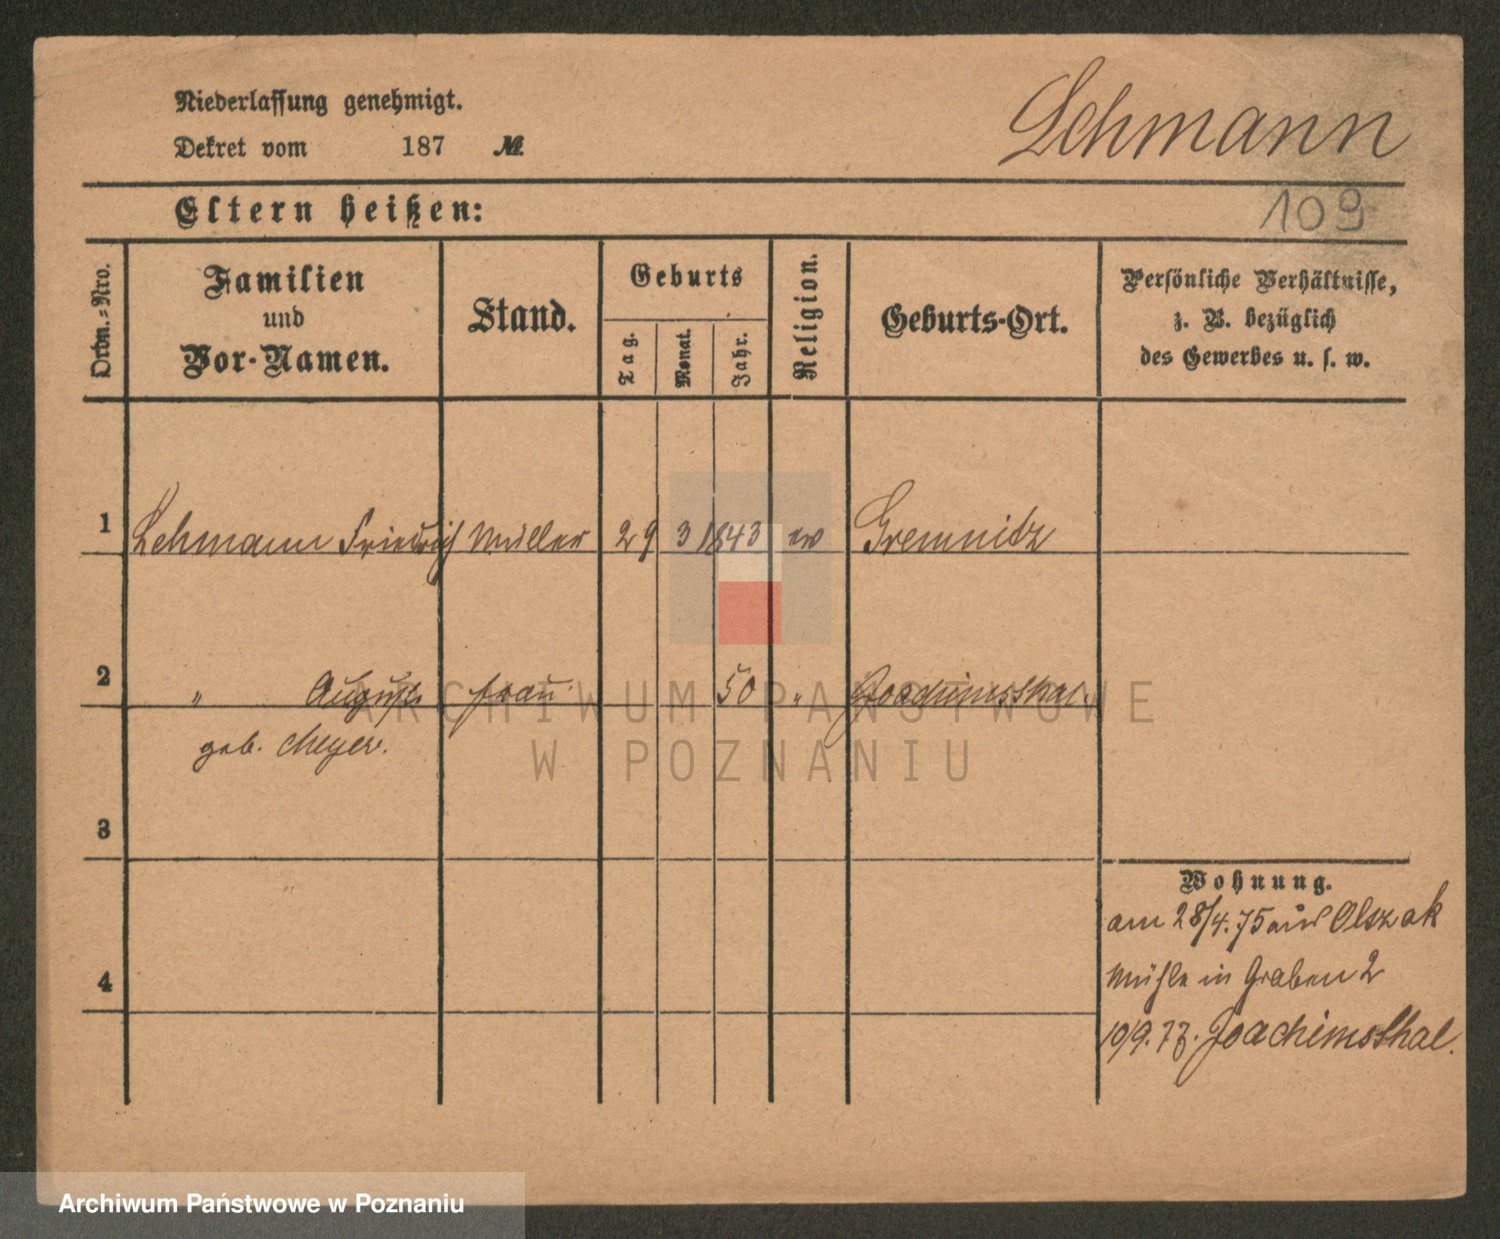 Niederlassung genehmigt.
Dekret vom 187 №
Lehmann
Eltern heißen:
109
Ordn.-Nro.
Familien
und
Vor-Namen.
Stand.
Geburts
Tag.
Monat.
Jahr.
Religion.
Geburts-Ort.
Persönliche Verhältnisse,
z. B. bezüglich
des Gewerbes u. s. w.
1 Lehmann Friedrich Müller 29 3 1843 ev Gremnitz
2 " Auguste Frau 50 " Joachimsthal.
geb. Meyer.
3
4
Wohnung.
am 28/4. 75 aus Olszak
Mühle in Graben 2
10/9. 77. Joachimsthal.
ARCHIWUM PAŃSTWOWE
W POZNANIU
Archiwum Państwowe w Poznaniu